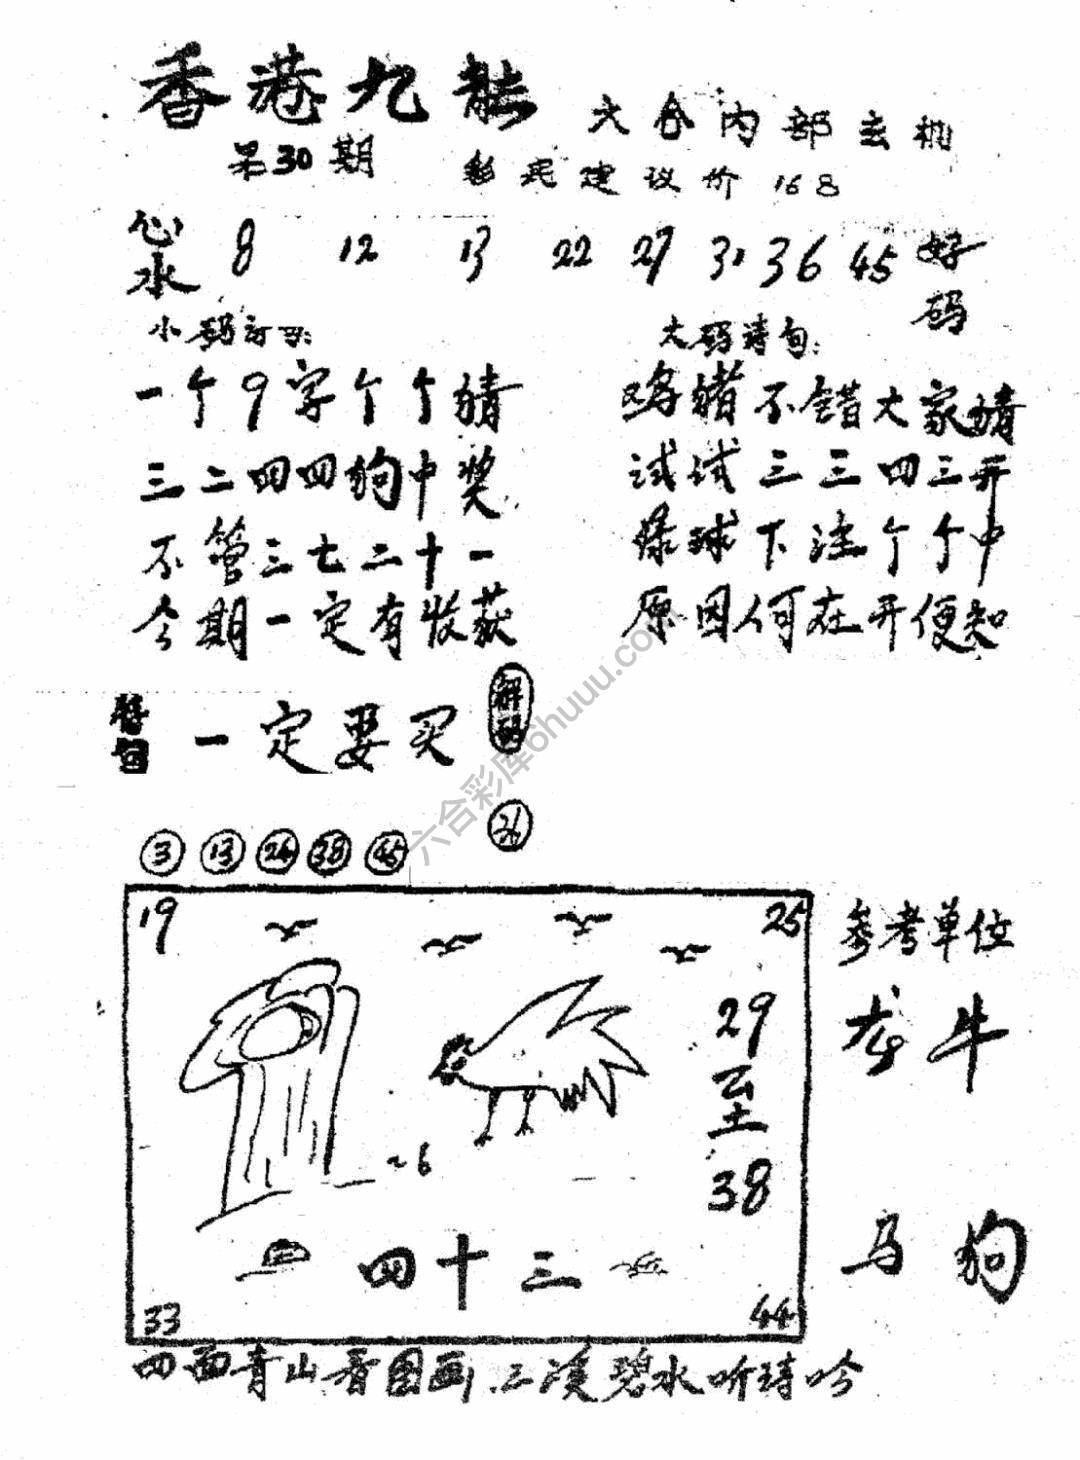 香港九龍
六合内部玄机
第30期
彩民建议价 168
心水 8 12 13 22 27 31 36 45 好码
小码诗句:
一个9字个个猜
三二四四狗中奖
不管三七二十一
今期一定有收获
大码诗句:
鸡猪不错大家猜
试试三三四三开
绿球下注个个中
原因何在开便知
一定要买
解码
3 13 26 38 45
26
19 25
29至38
~6
四十三
33 44
参考单位
龙 牛
马 狗
四面青山看图画.三溪碧水听诗吟
六合彩库6huuu.com